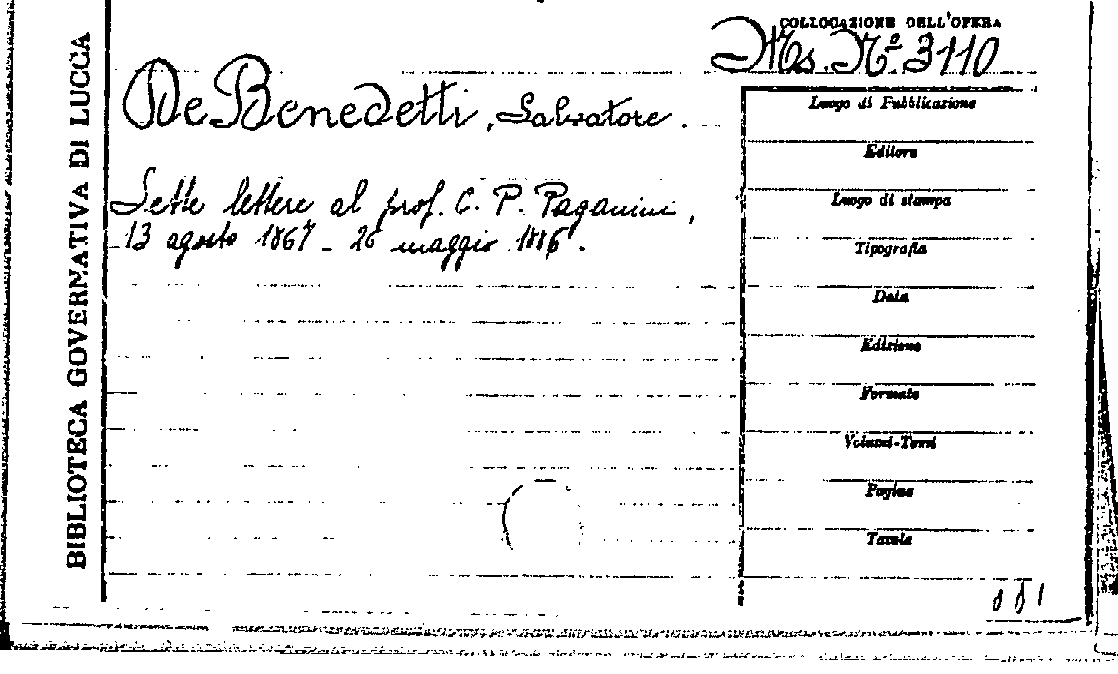 BIBLIOTECA GOVERNATIVA DI LUCCA
COLLOCAZIONE DELL'OPERA
Ms. Nº 3110
De Benedetti, Salvatore.
Sette lettere al prof. C. P. Paganini,
13 agosto 1867 - 26 maggio 1886.
Luogo di Pubblicazione
Editore
Luogo di stampa
Tipografia
Data
Edizione
Formato
Volumi-Tomi
Pagine
Tavole